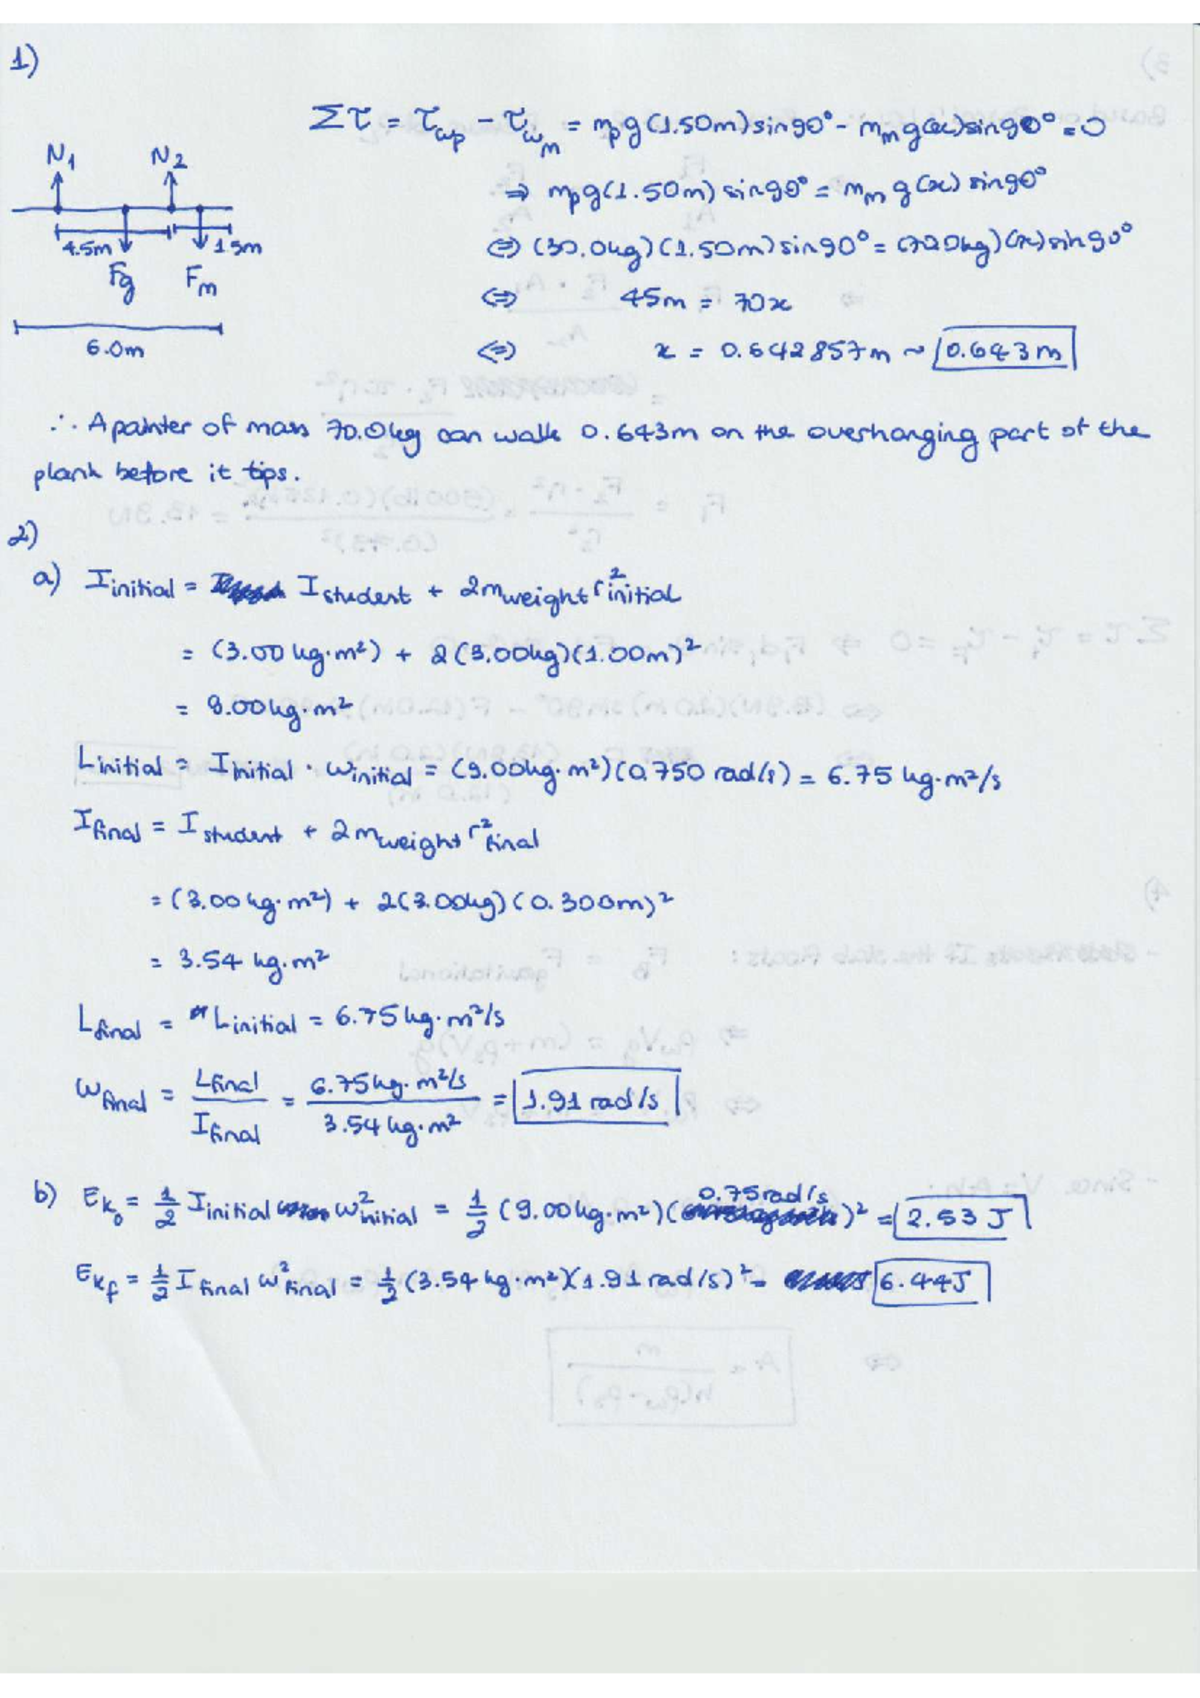 1)
Στ = τwp − τwm = mpg(1.50m)sin90° − mmg(x)sin90° = 0
N1 N2
⇒ mpg(1.50m) sin90° = mm g(x) sin90°
4.5m 1.5m
⇔ (30.0kg)(1.50m)sin90° = (70.0kg)(x)sin90°
Fg Fm
⇔ 45m = 70x
6.0m
⇔ x = 0.642857m ~ 0.643m
∴ A painter of mass 70.0kg can walk 0.643m on the overhanging part of the
plank before it tips.
2)
a) Iinitial = Istudent + 2mweight r²initial
= (3.00 kg·m²) + 2(3.00kg)(1.00m)²
= 9.00kg·m²
Linitial = Iinitial · ωinitial = (9.00kg·m²)(0.750 rad/s) = 6.75 kg·m²/s
Ifinal = Istudent + 2mweight r²final
= (3.00 kg·m²) + 2(3.00kg)(0.300m)²
= 3.54 kg·m²
Lfinal = Linitial = 6.75kg·m²/s
ωfinal = Lfinal / Ifinal = 6.75kg·m²/s / 3.54kg·m² = 1.91 rad/s
b) Ek0 = 1/2 Iinitial ω²initial = 1/2 (9.00kg·m²)(0.75rad/s)² = 2.53 J
Ekf = 1/2 Ifinal ω²final = 1/2 (3.54 kg·m²)(1.91 rad/s)² = 6.44J